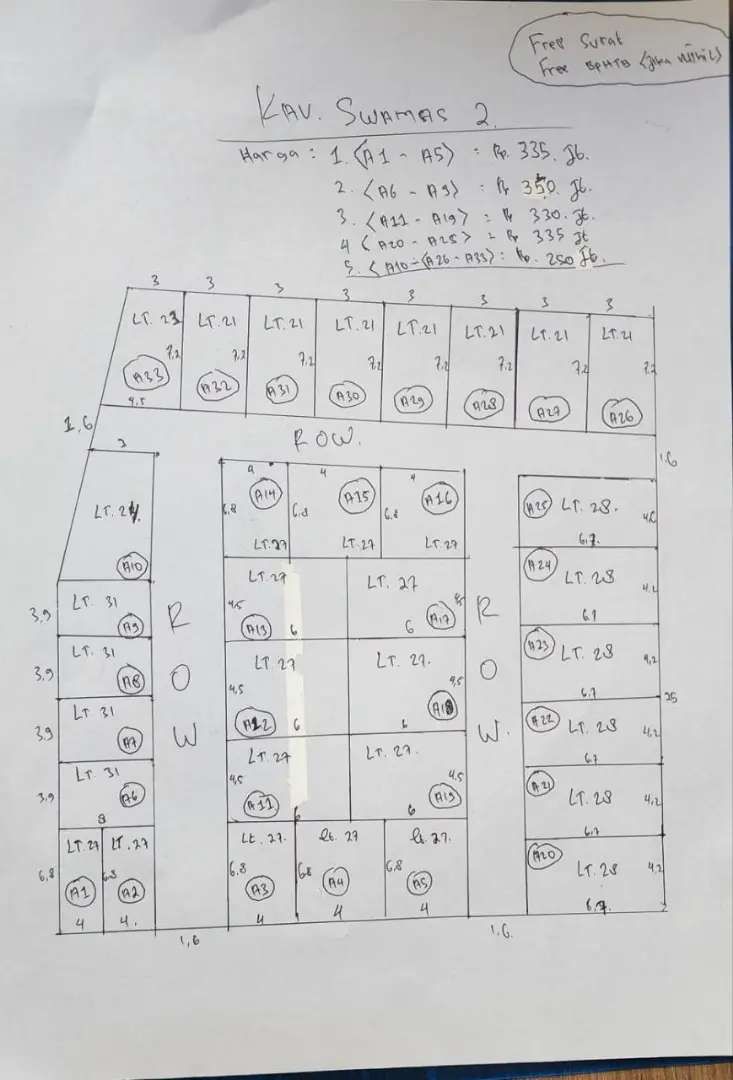 Free Surat
Free BPHTB (Jika Nihil)
KAV. SWAMAS 2.
Harga : 1. <A1 - A5> : Rp. 335. Jt.
2. <A6 - A9> : Rp 350. Jt.
3. <A11 - A19> = Rp 330. Jt.
4 < A20 - A25> = Rp 335 Jt
5. < A10 - <A26 - A33> : Rp. 250 Jt.
3 3 3 3 3 3 3 3
LT. 23 LT. 21 LT. 21 LT. 21 LT. 21 LT. 21 LT. 21 LT. 21
7,2 7,2 7,2 7,2 7,2 7,2 7,2 7,2
A33 A32 A31 A30 A29 A28 A27 A26
4,5
1,6
ROW.
1,6
3
LT. 24.
A10
4 4 4
A14 A15 A16
6.8 6.8 6.8
LT.27 LT.27 LT.27
A25 LT. 28.
6.7.
3,9 LT. 31 A9
LT.27 LT. 27
4,5 A13 6 6 A17 4,5
A24 LT. 28 4,2
3,9 LT. 31 A8
LT. 27 LT. 27.
4,5 A12 6 6 A18 4,5
A23 LT. 28 4,2
6.7
3,9 LT 31 A7
ROW
ROW.
25
A22 LT. 28 4,2
6.7
3,9 LT. 31 A6
8
LT. 27 LT. 27.
4,5 A11 6 6 A19 4,5
A21 LT. 28 4,2
6.7
LT. 27 LT. 27
6,8 A1 6.8 A2
4 4.
Lt. 27. Lt. 27 Lt. 27.
6,8 A3 6.8 A4 6.8 A5
4 4 4
A20 LT. 28 4,2
6.7
1,6 1.6.